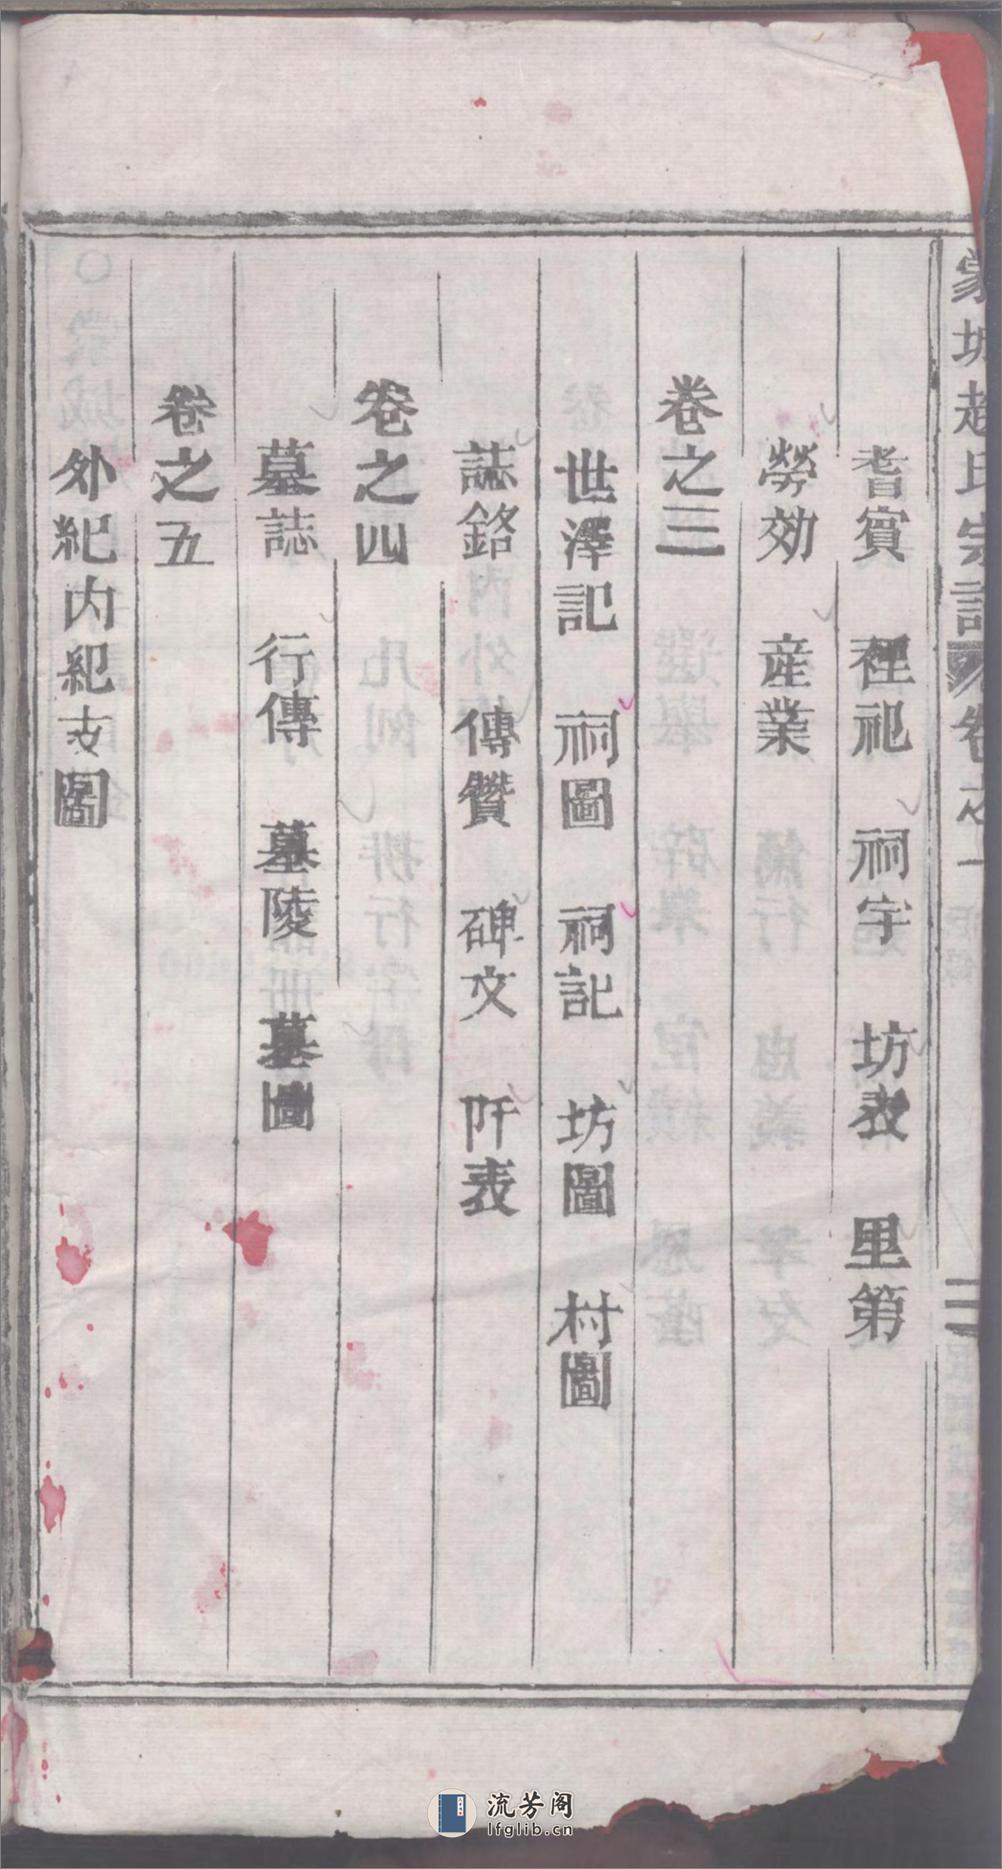 耆賔 禋祀 祠宇 坊表 里第
勞効 産業
卷之三
世澤記 祠圖 祠記 坊圖 村圖
誌銘 傳贊 碑文 阡表
卷之四
墓誌 行傳 墓陵 墓圖
卷之五
外紀内紀支圖
城趙氏宗譜 卷之一
流芳阁
lfglib.cn